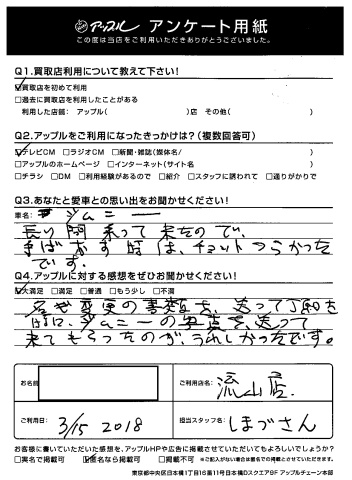 アップル アンケート用紙
この度は当店をご利用いただきありがとうございました。
Q1.買取店利用について教えて下さい!
☑買取店を初めて利用
□過去に買取店を利用したことがある
利用した店舗: アップル( )店 その他( )
Q2.アップルをご利用になったきっかけは?(複数回答可)
☑テレビCM □ラジオCM □新聞・雑誌(媒体名/ )
□アップルのホームページ □インターネット(サイト名 )
□チラシ □DM □利用経験があるので □紹介 □スタッフに誘われて □通りがかりで
Q3.あなたと愛車との思い出をお聞かせください!
車名: ジムニー
長い間乗って来たので、
手ばなす時は、チョットつらかった
です。
Q4.アップルに対する感想をぜひお聞かせください!
☑大満足 □満足 □普通 □もう少し □不満
名ぎ変更の書類を、送って頂
ジムニーの写真を、送って
来てもらったのが、うれしかったです。
お名前
ご利用店名: 流山店.
ご利用日: 3/15 2018
担当スタッフ名: しまづさん
お客様に書いていただいた感想を、アップルHPや広告に掲載させていただいてもよろしいでしょうか?
□実名で掲載可 ☑匿名なら掲載可 □掲載不可 ※ご記入がない場合は匿名での掲載とさせていただきます。
東京都中央区日本橋1丁目16番11号日本橋Dスクエア9F アップルチェーン本部